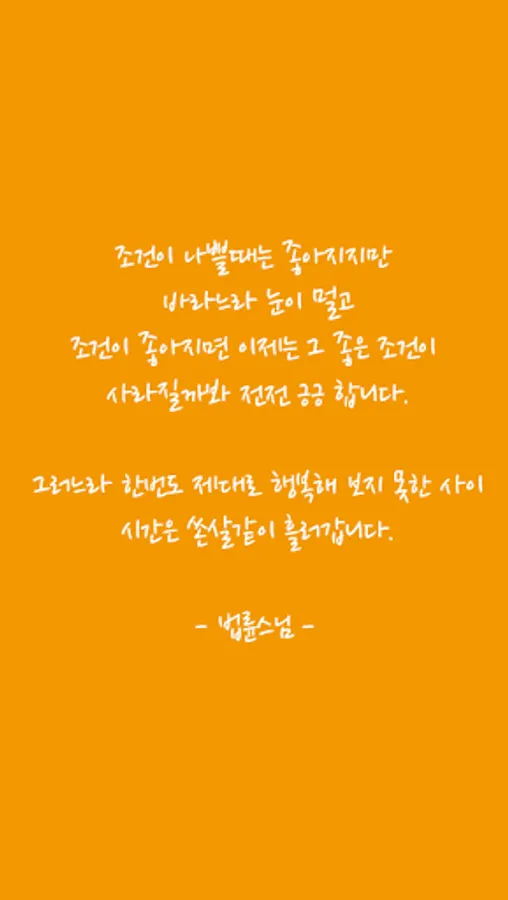 조건이 나쁠때는 좋아지지만
바라느라 눈이 멀고
조건이 좋아지면 이제는 그 좋은 조건이
사라질까봐 전전 긍긍 합니다.
그러느라 한번도 제대로 행복해 보지 못한 사이
시간은 쏜살같이 흘러갑니다.
- 법륜스님 -